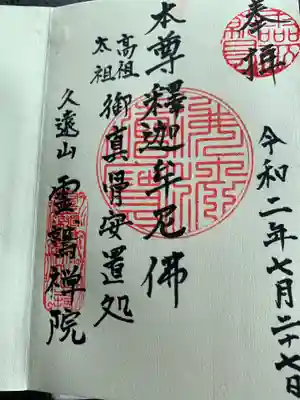 奉拝
令和二年七月二十七日
本尊釋迦牟尼佛
高祖
太祖
御真骨安置処
久遠山 霊鷲禅院